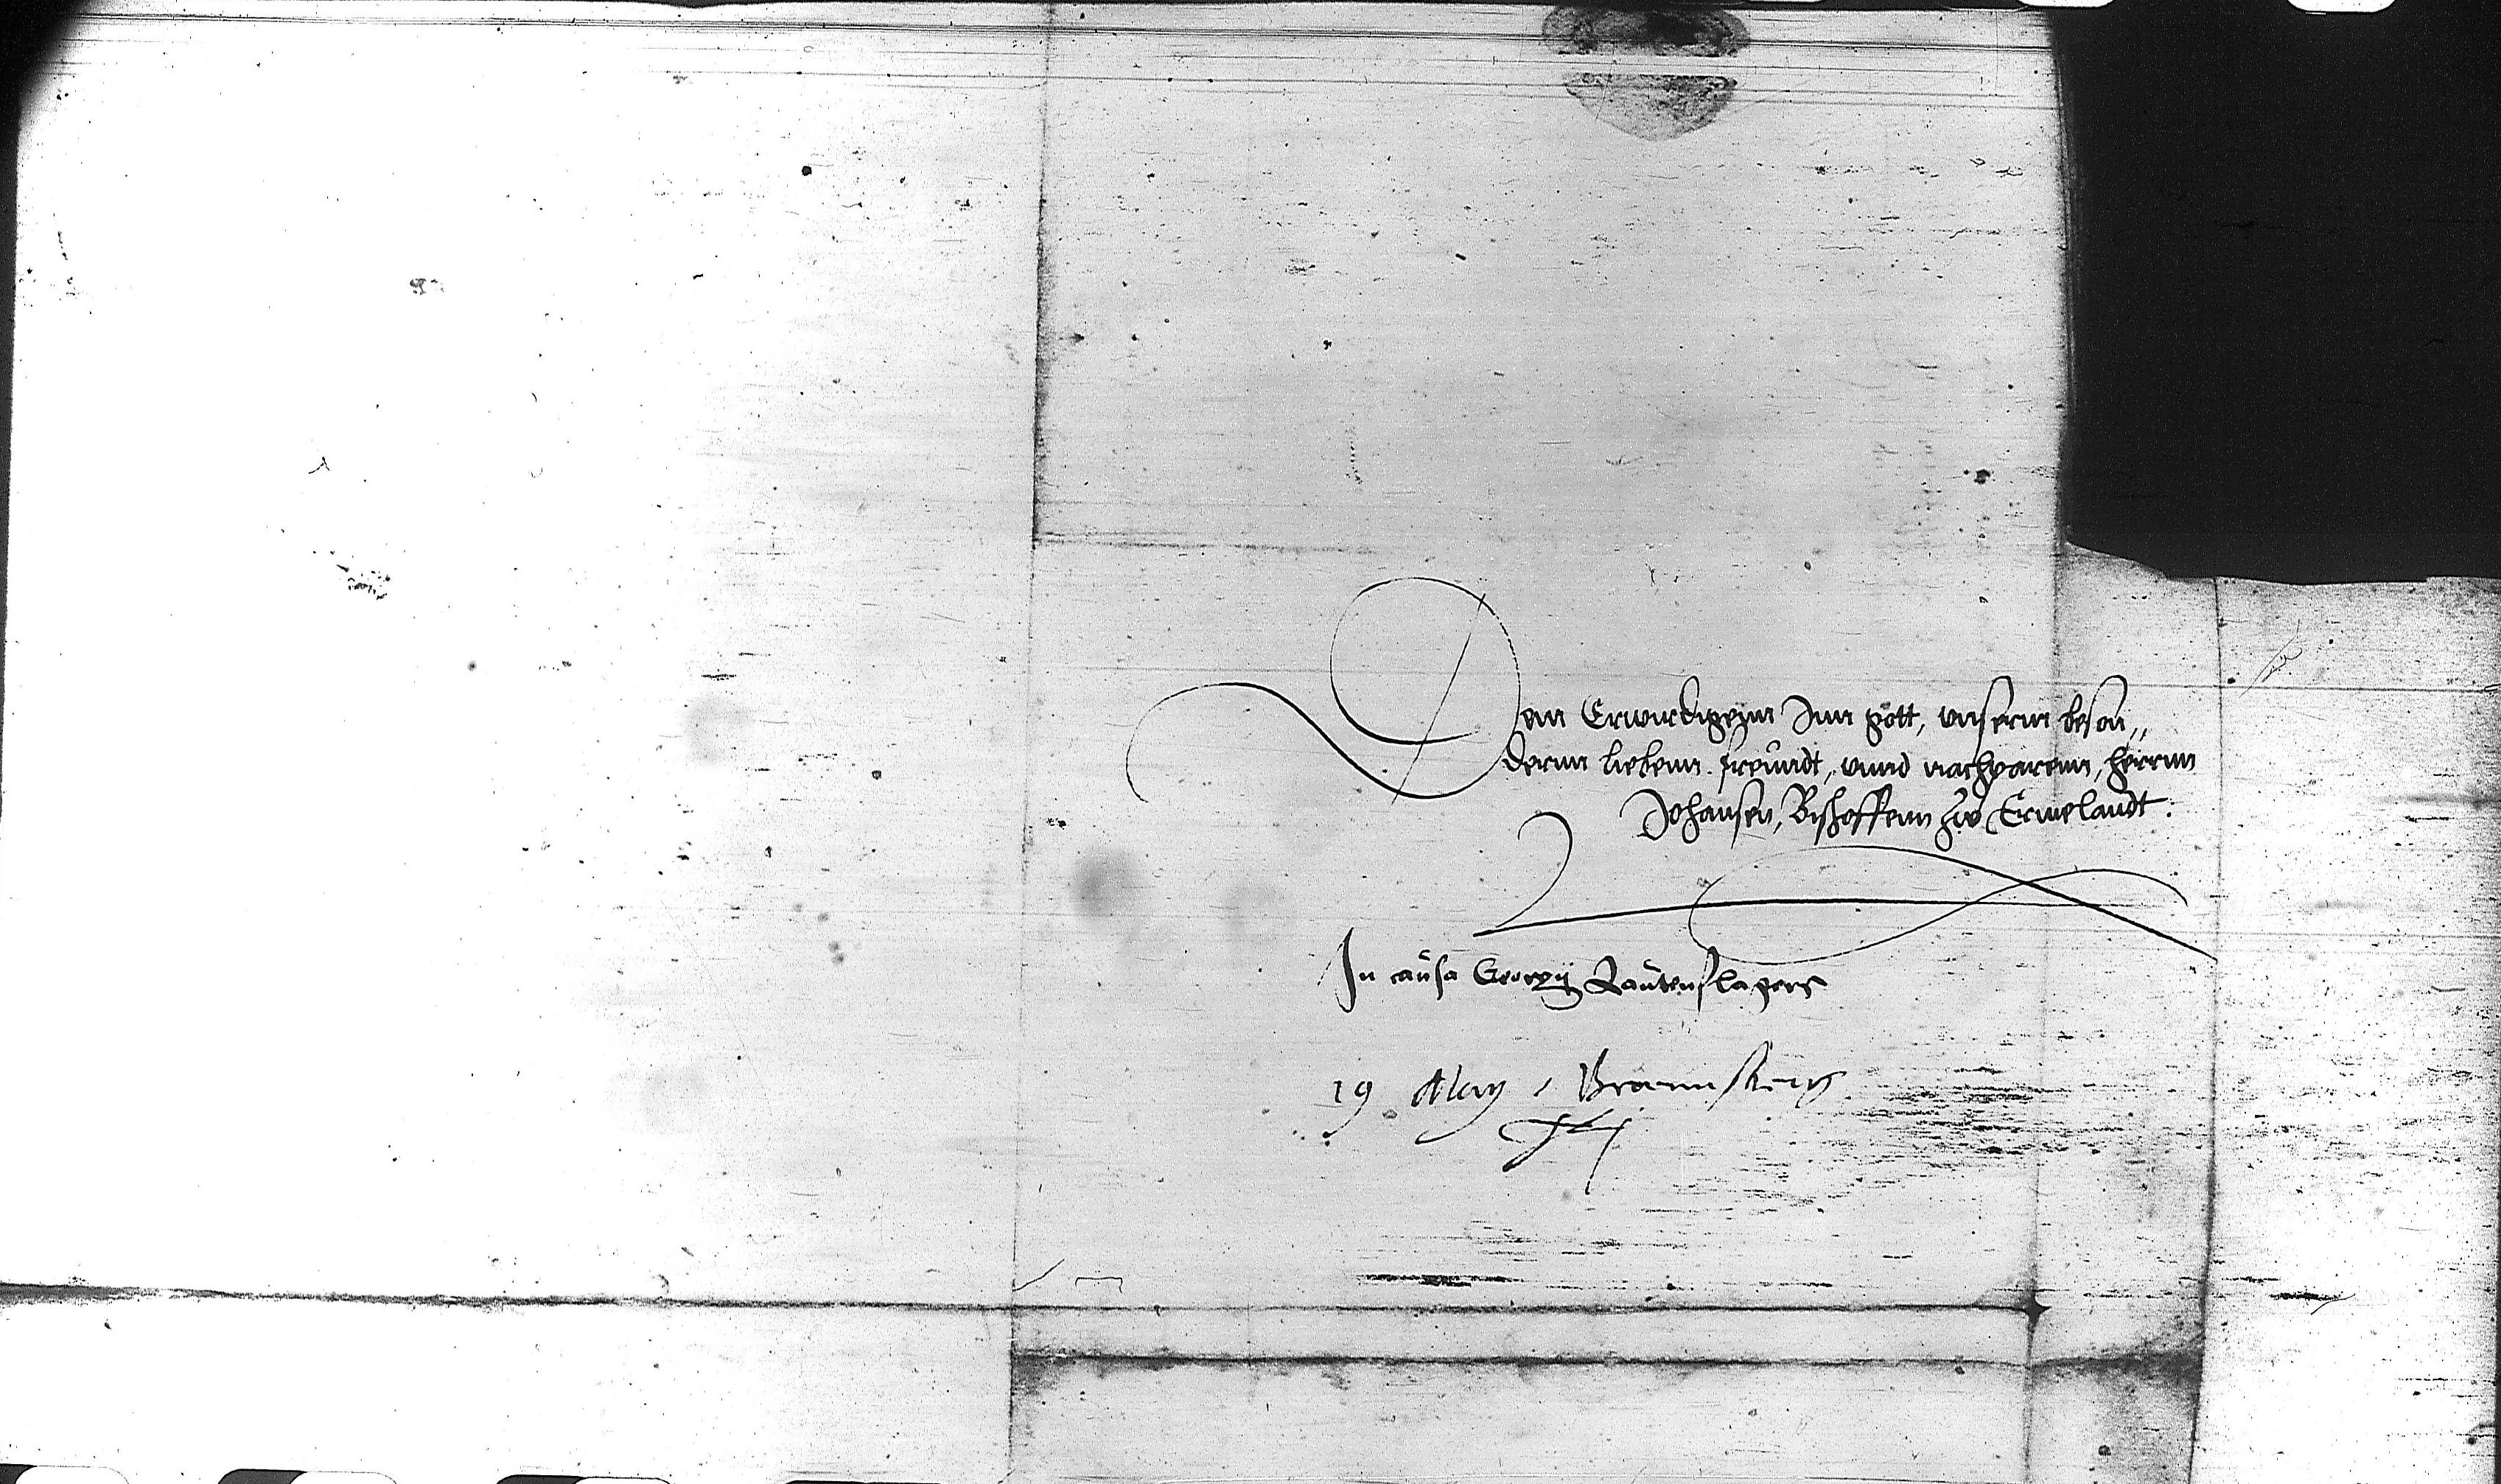 Dem Erwirdigenn Inn gott, vnserm beson„
dernn liebenn freundt, vnnd nachparenn, herrnn
Johansen, Bischoffenn zw Ermelandt.
In causa Georgij Lautenslagers
19 May, Braunsberg